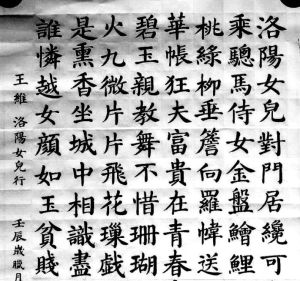 洛陽女兒對門居纔可
乘驄馬侍女金盤鱠鯉
桃綠柳垂簷向羅幃送
華帳狂夫富貴在青春
碧玉親教舞不惜珊瑚
火九微片片飛花璅戯
是熏香坐城中相識盡
誰憐越女顔如玉貧賤
王維 洛陽女兒行 壬辰歲臘月